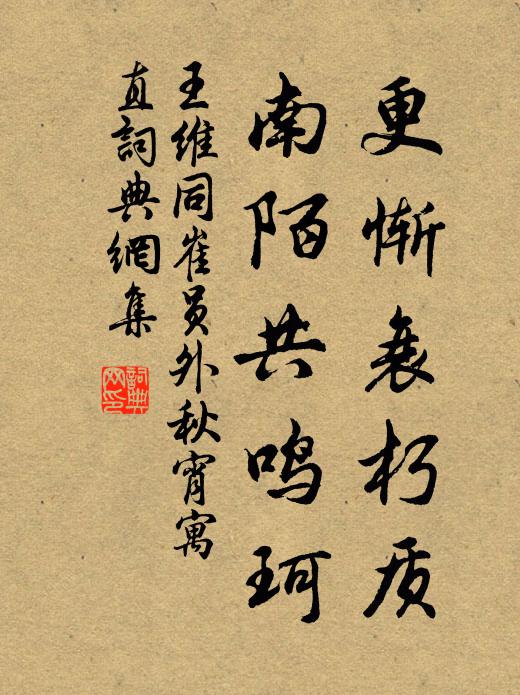 更慚衰朽质
南陌共鸣珂
王维同崔员外秋宵寓
直詞典網集
詞典
网印